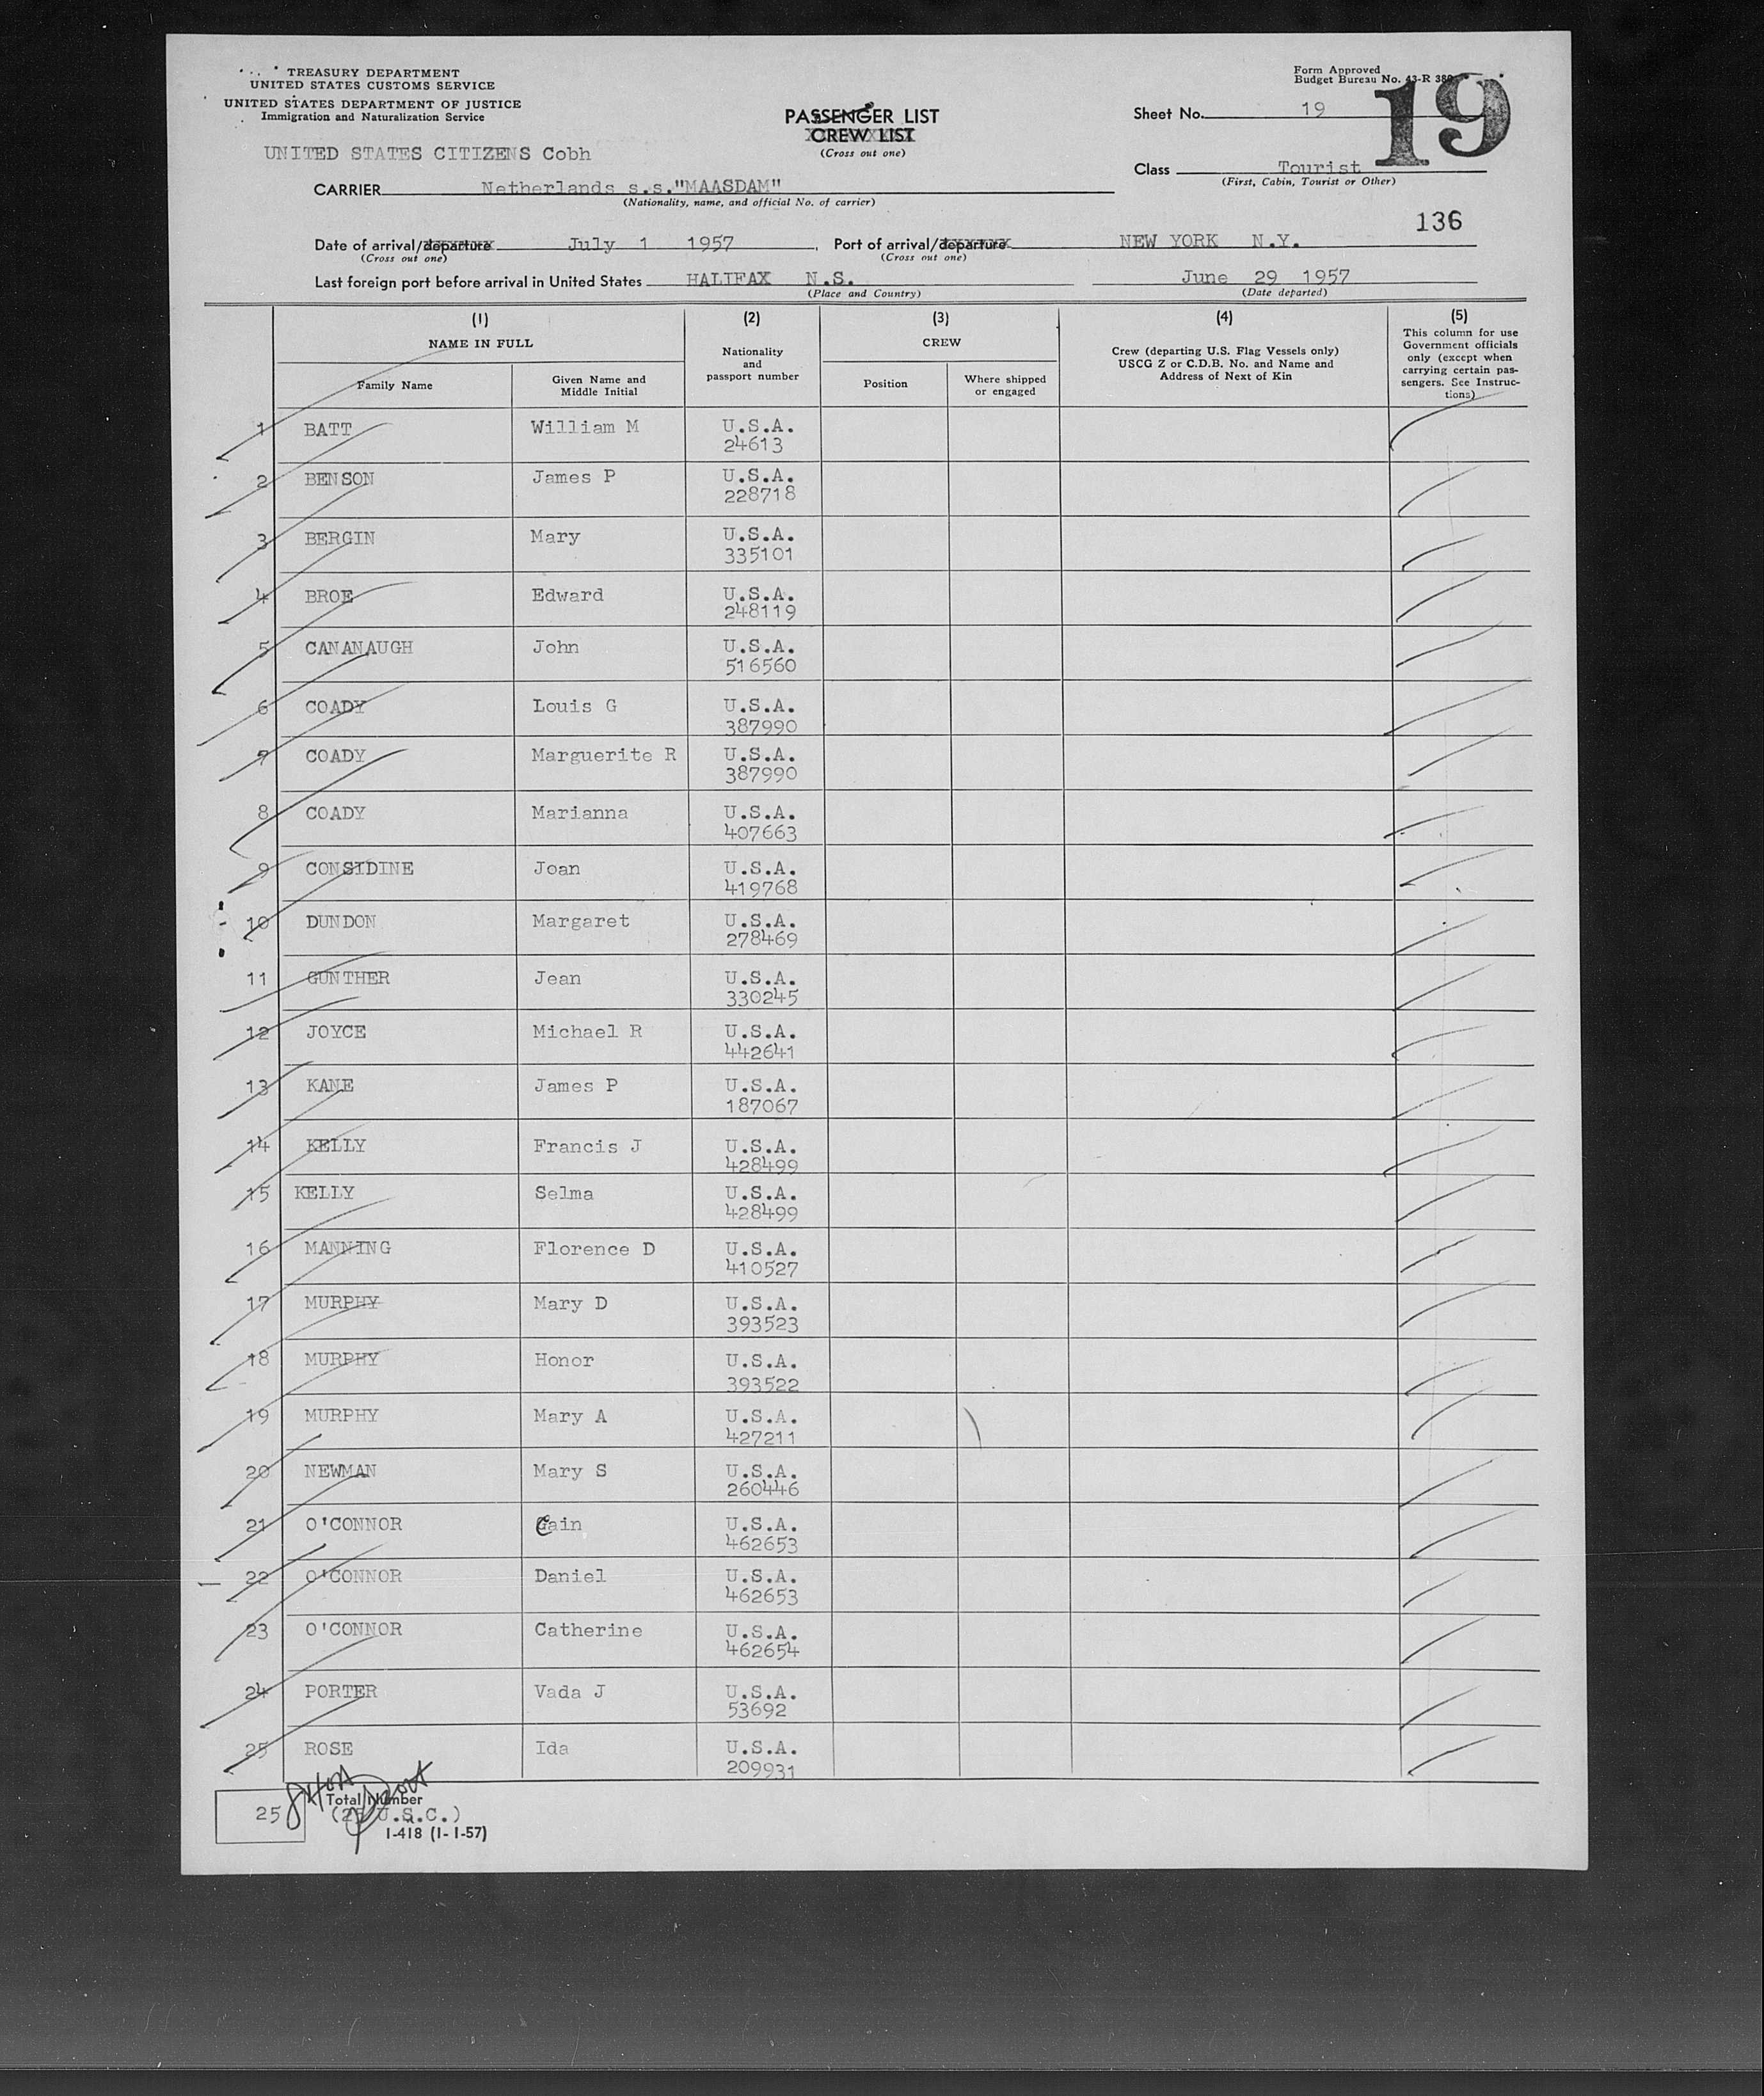 TREASURY DEPARTMENT
UNITED STATES CUSTOMS SERVICE
UNITED STATES DEPARTMENT OF JUSTICE
Immigration and Naturalization Service
UNITED STATES CITIZENS Cobh
PASSENGER LIST
CREW LIST
(Cross out one)
Form Approved
Budget Bureau No. 43-R 380
Sheet No. 19
19
Class Tourist
(First, Cabin, Tourist or Other)
CARRIER Netherlands s.s."MAASDAM"
(Nationality, name, and official No. of carrier)
136
Date of arrival/departure July 1 1957, Port of arrival/departure NEW YORK N.Y.
(Cross out one) (Cross out one)
Last foreign port before arrival in United States HALIFAX N.S. June 29 1957
(Place and Country) (Date departed)
(1) (2) (3) (4) (5)
NAME IN FULL
Family Name
Given Name and
Middle Initial
Nationality
and
passport number
CREW
Position
Where shipped
or engaged
Crew (departing U.S. Flag Vessels only)
USCG Z or C.D.B. No. and Name and
Address of Next of Kin
This column for use
Government officials
only (except when
carrying certain pas-
sengers. See Instruc-
tions)
1 BATT William M U.S.A.
24613
2 BENSON James P U.S.A.
228718
3 BERGIN Mary U.S.A.
335101
4 BROE Edward U.S.A.
248119
5 CANANAUGH John U.S.A.
516560
6 COADY Louis G U.S.A.
387990
7 COADY Marguerite R U.S.A.
387990
8 COADY Marianna U.S.A.
407663
9 CONSIDINE Joan U.S.A.
419768
10 DUNDON Margaret U.S.A.
278469
11 GUNTHER Jean U.S.A.
330245
12 JOYCE Michael R U.S.A.
442641
13 KANE James P U.S.A.
187067
14 KELLY Francis J U.S.A.
428499
15 KELLY Selma U.S.A.
428499
16 MANNING Florence D U.S.A.
410527
17 MURPHY Mary D U.S.A.
393523
18 MURPHY Honor U.S.A.
393522
19 MURPHY Mary A U.S.A.
427211
20 NEWMAN Mary S U.S.A.
260446
21 O'CONNOR Cain U.S.A.
462653
22 O'CONNOR Daniel U.S.A.
462653
23 O'CONNOR Catherine U.S.A.
462654
24 PORTER Vada J U.S.A.
53692
25 ROSE Ida U.S.A.
209931
25 Total Number
(25 U.S.C.)
I-418 (1-1-57)